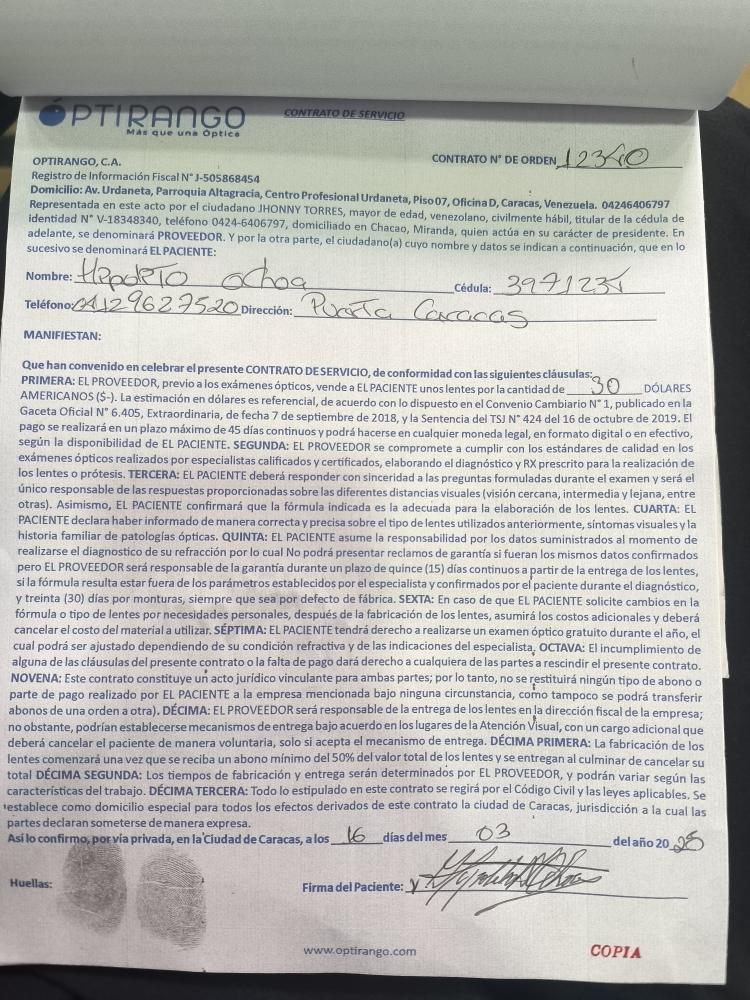 ÓPTIRANGO
Más que una Óptica
CONTRATO DE SERVICIO
CONTRATO N° DE ORDEN 12340
OPTIRANGO, C.A.
Registro de Información Fiscal N° J-505868454
Domicilio: Av. Urdaneta, Parroquia Altagracia, Centro Profesional Urdaneta, Piso 07, Oficina D, Caracas, Venezuela. 04246406797
Representada en este acto por el ciudadano JHONNY TORRES, mayor de edad, venezolano, civilmente hábil, titular de la cédula de
identidad N° V-18348340, teléfono 0424-6406797, domiciliado en Chacao, Miranda, quien actúa en su carácter de presidente. En
adelante, se denominará PROVEEDOR. Y por la otra parte, el ciudadano(a) cuyo nombre y datos se indican a continuación, que en lo
sucesivo se denominará EL PACIENTE:
Nombre: Ochoa Cédula:
Teléfono: 04129627520 Dirección: Puerta Caracas
MANIFIESTAN:
Que han convenido en celebrar el presente CONTRATO DE SERVICIO, de conformidad con las siguientes cláusulas:
PRIMERA: EL PROVEEDOR, previo a los exámenes ópticos, vende a EL PACIENTE unos lentes por la cantidad de 30 DÓLARES
AMERICANOS ($-). La estimación en dólares es referencial, de acuerdo con lo dispuesto en el Convenio Cambiario N° 1, publicado en la
Gaceta Oficial N° 6.405, Extraordinaria, de fecha 7 de septiembre de 2018, y la Sentencia del TSJ N° 424 del 16 de octubre de 2019. El
pago se realizará en un plazo máximo de 45 días continuos y podrá hacerse en cualquier moneda legal, en formato digital o en efectivo,
según la disponibilidad de EL PACIENTE. SEGUNDA: EL PROVEEDOR se compromete a cumplir con los estándares de calidad en los
exámenes ópticos realizados por especialistas calificados y certificados, elaborando el diagnóstico y RX prescrito para la realización de
los lentes o prótesis. TERCERA: EL PACIENTE deberá responder con sinceridad a las preguntas formuladas durante el examen y será el
único responsable de las respuestas proporcionadas sobre las diferentes distancias visuales (visión cercana, intermedia y lejana, entre
otras). Asimismo, EL PACIENTE confirmará que la fórmula indicada es la adecuada para la elaboración de los lentes. CUARTA: EL
PACIENTE declara haber informado de manera correcta y precisa sobre el tipo de lentes utilizados anteriormente, síntomas visuales y la
historia familiar de patologías ópticas. QUINTA: EL PACIENTE asume la responsabilidad por los datos suministrados al momento de
realizarse el diagnostico de su refracción por lo cual No podrá presentar reclamos de garantía si fueran los mismos datos confirmados
pero EL PROVEEDOR será responsable de la garantía durante un plazo de quince (15) días continuos a partir de la entrega de los lentes,
si la fórmula resulta estar fuera de los parámetros establecidos por el especialista y confirmados por el paciente durante el diagnóstico,
y treinta (30) días por monturas, siempre que sea por defecto de fábrica. SEXTA: En caso de que EL PACIENTE solicite cambios en la
fórmula o tipo de lentes por necesidades personales, después de la fabricación de los lentes, asumirá los costos adicionales y deberá
cancelar el costo del material a utilizar. SÉPTIMA: EL PACIENTE tendrá derecho a realizarse un examen óptico gratuito durante el año, el
cual podrá ser ajustado dependiendo de su condición refractiva y de las indicaciones del especialista. OCTAVA: El incumplimiento de
alguna de las cláusulas del presente contrato o la falta de pago dará derecho a cualquiera de las partes a rescindir el presente contrato.
NOVENA: Este contrato constituye un acto jurídico vinculante para ambas partes; por lo tanto, no se restituirá ningún tipo de abono o
parte de pago realizado por EL PACIENTE a la empresa mencionada bajo ninguna circunstancia, como tampoco se podrá transferir
abonos de una orden a otra). DÉCIMA: EL PROVEEDOR será responsable de la entrega de los lentes en la dirección fiscal de la empresa;
no obstante, podrían establecerse mecanismos de entrega bajo acuerdo en los lugares de la Atención Visual, con un cargo adicional que
deberá cancelar el paciente de manera voluntaria, solo si acepta el mecanismo de entrega. DÉCIMA PRIMERA: La fabricación de los
lentes comenzará una vez que se reciba un abono mínimo del 50% del valor total de los lentes y se entregan al culminar de cancelar su
total DÉCIMA SEGUNDA: Los tiempos de fabricación y entrega serán determinados por EL PROVEEDOR, y podrán variar según las
características del trabajo. DÉCIMA TERCERA: Todo lo estipulado en este contrato se regirá por el Código Civil y las leyes aplicables. Se
establece como domicilio especial para todos los efectos derivados de este contrato la ciudad de Caracas, jurisdicción a la cual las
partes declaran someterse de manera expresa.
Así lo confirmo, por vía privada, en la Ciudad de Caracas, a los 16 días del mes 03 del año 20 25
Huellas:
Firma del Paciente:
www.optirango.com
COPIA